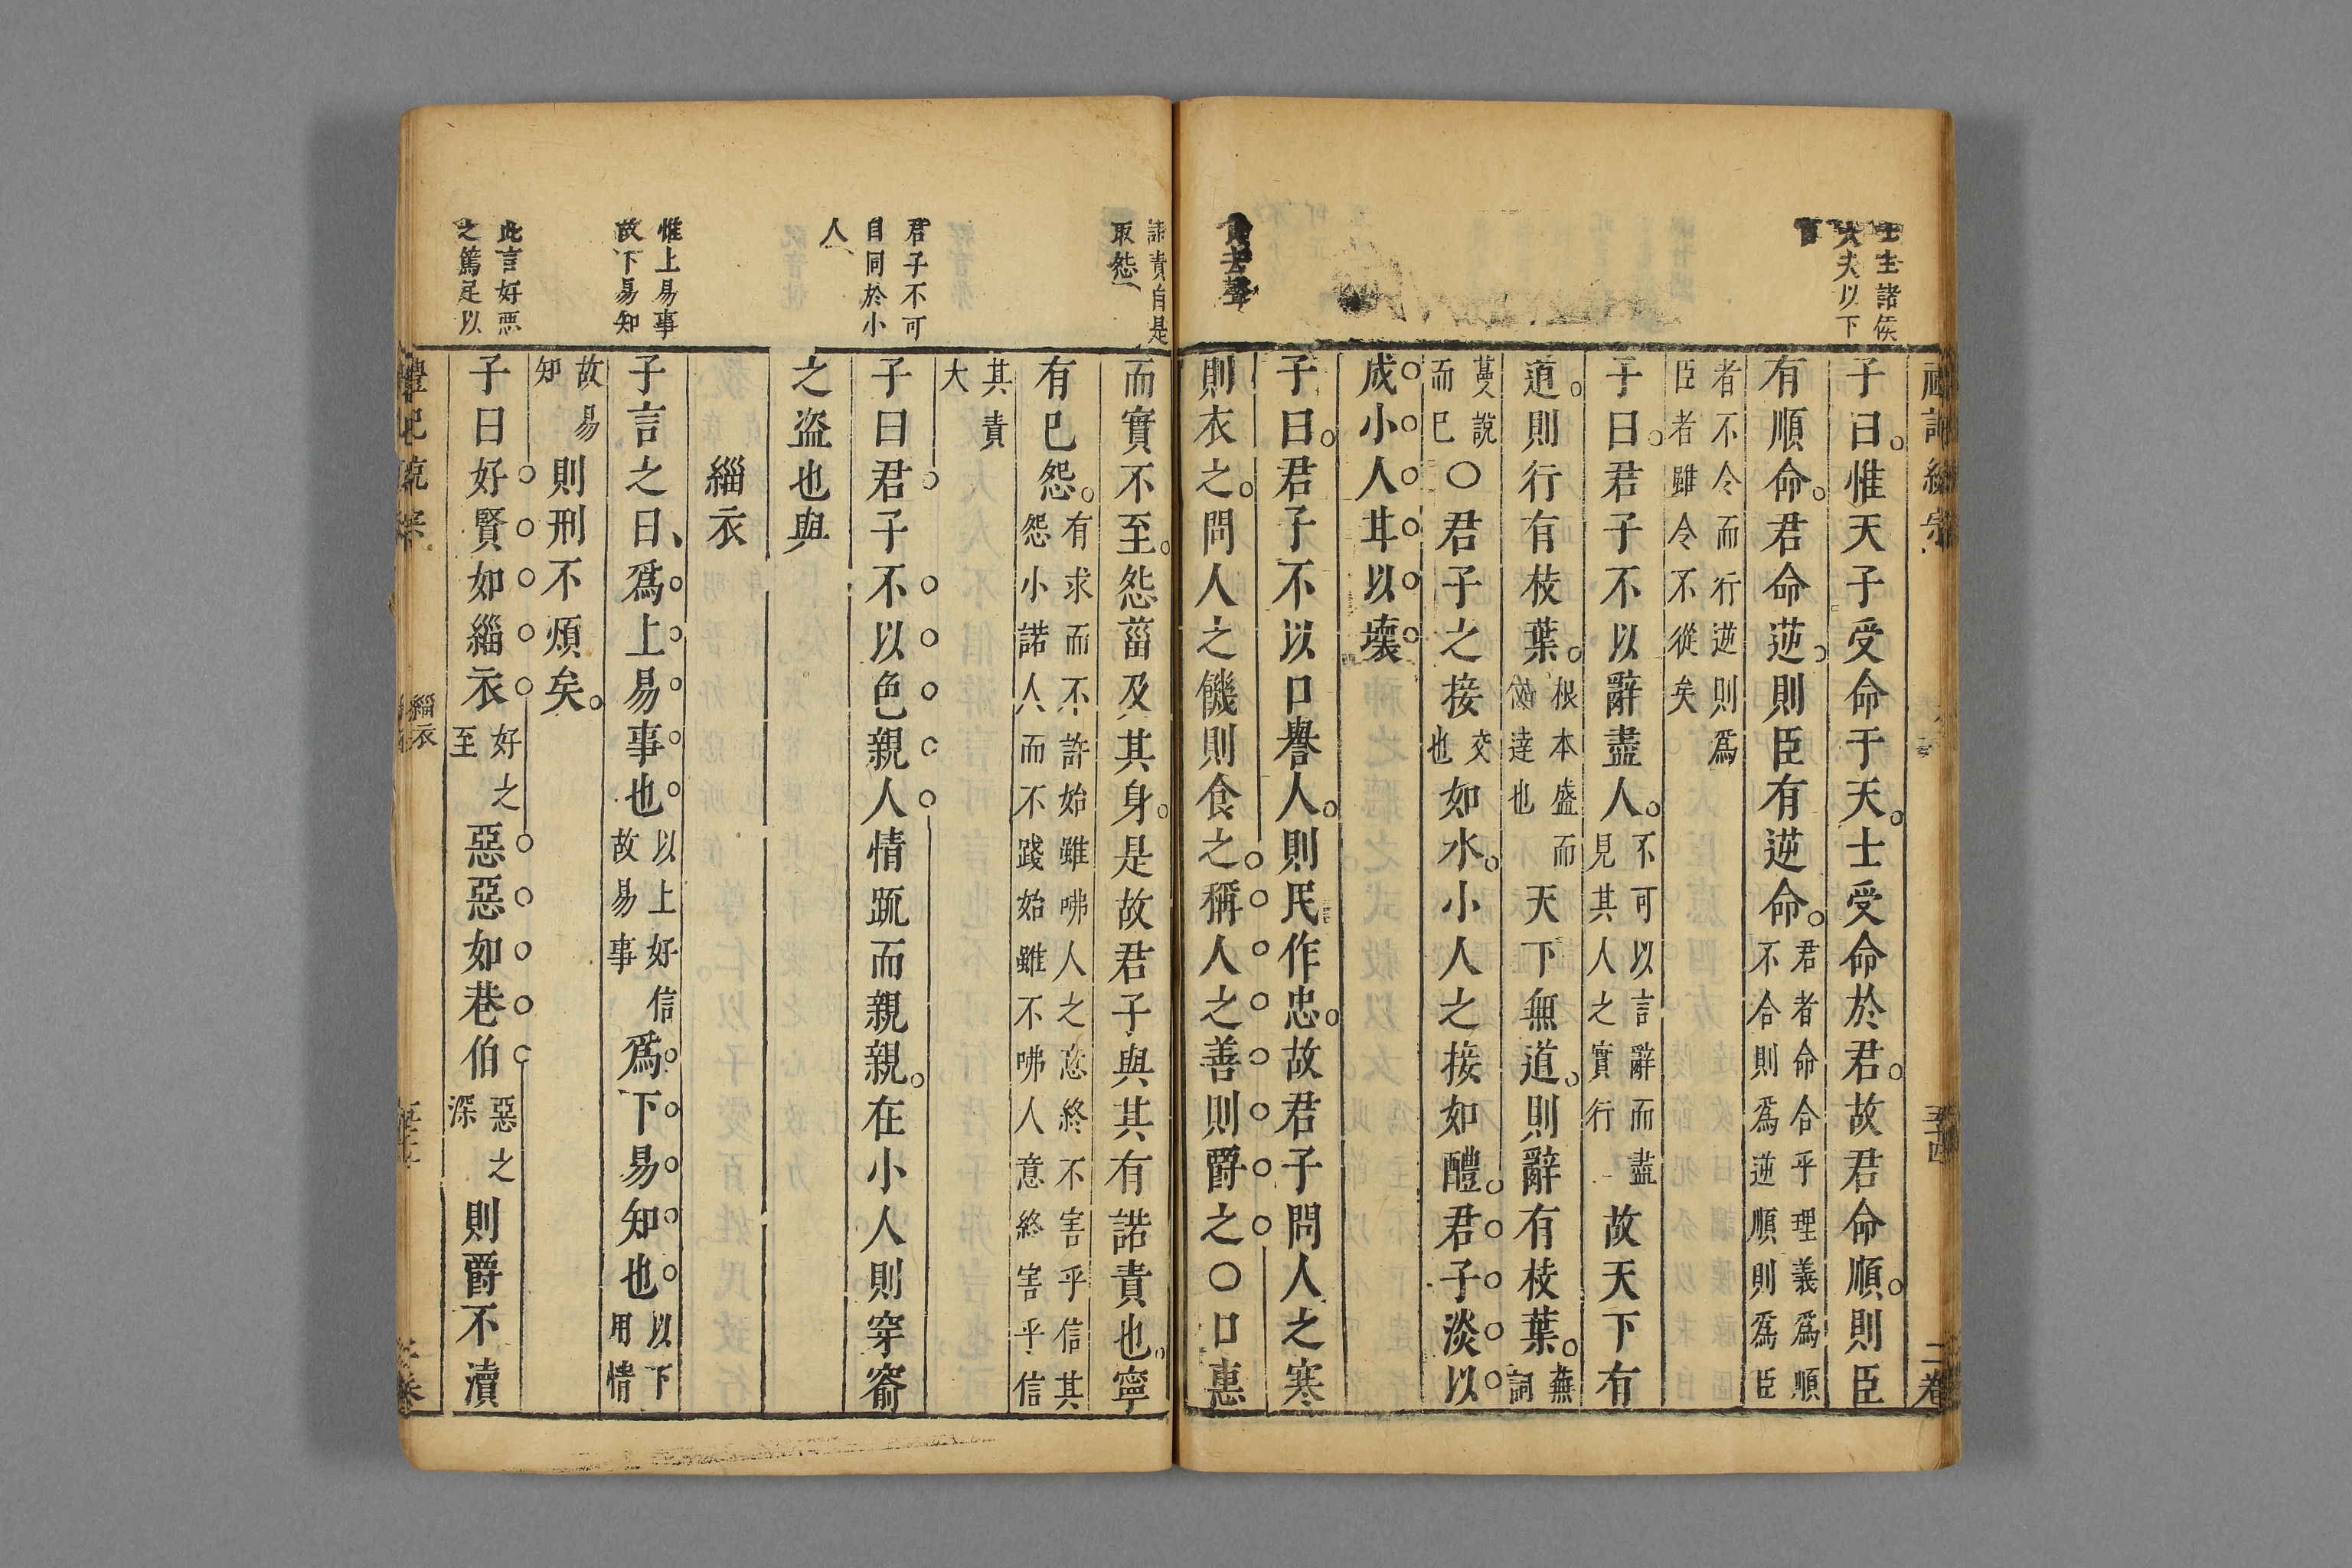 士主諸侯
大夫以下
言
子曰惟天子受命于天士受命於君故君命順則臣
有順命君命逆則臣有逆命君者命合乎理義爲順
不合則爲逆順則爲臣
者不令而行逆則爲
臣者雖令不從矣
子曰君子不以辭盡人不可以言辭而盡
見其人之實行故天下有
道則行有枝葉根本盛而
達也天下無道則辭有枝葉蕪
詞
蔓說
而已〇君子之接交
也如水小人之接如醴君子淡以
成小人甘以壞
子曰君子不以口譽人則民作忠故君子問人之寒
則衣之問人之饑則食之稱人之善則爵之〇口惠
諸責自是
取怨
君子不可
自同於小
人
惟上易事
故下易知
此言好惡
之篤足以
而實不至怨菑及其身是故君子與其有諾責也寧
有已怨有求而不許始雖咈人之意終不害乎信其
怨小諾人而不踐始雖不咈人意終害乎信
其責
大
子曰君子不以色親人情疏而親親在小人則穿窬
之盜也與
緇衣
子言之曰爲上易事也以上好信
故易事爲下易知也以下
用情
故易
知則刑不煩矣
子曰好賢如緇衣好之
至惡惡如巷伯惡之
深則爵不瀆
緇衣
二卷